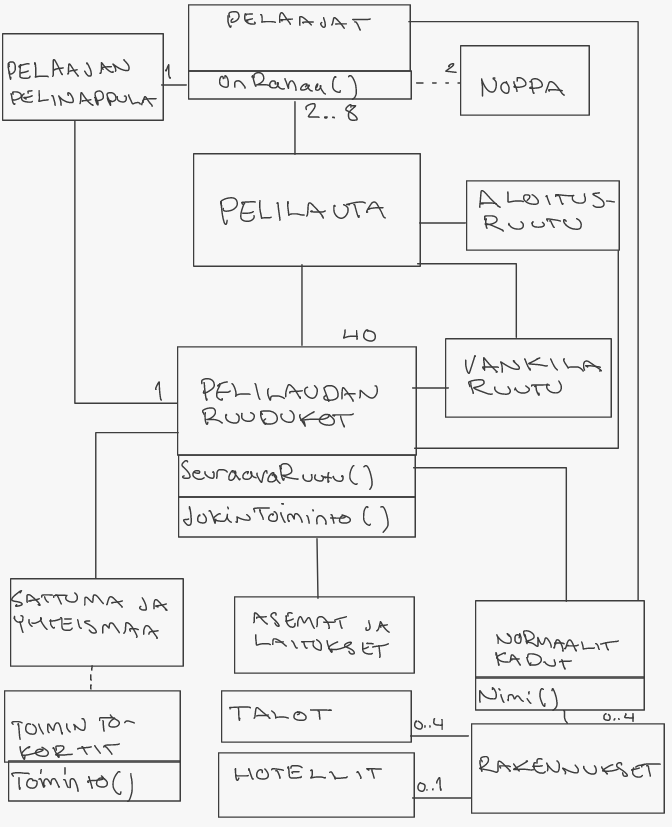 PELAAJAT
PELAAJAN
PELINAPPULA
1
OnRahaa()
2
NOPPA
2..8
PELILAUTA
ALOITUS-
RUUTU
40
VANKILA
RUUTU
1
PELILAUDAN
RUUDUKOT
SeuraavaRuutu()
JokinToiminto()
SATTUMA JA
YHTEISMAA
ASEMAT JA
LAITOKSET
NORMAALIT
KADUT
Nimi()
TOIMINTO-
KORTIT
Toiminto()
TALOT
0..4
0..4
HOTELLIT
0..1
RAKENNUKSET